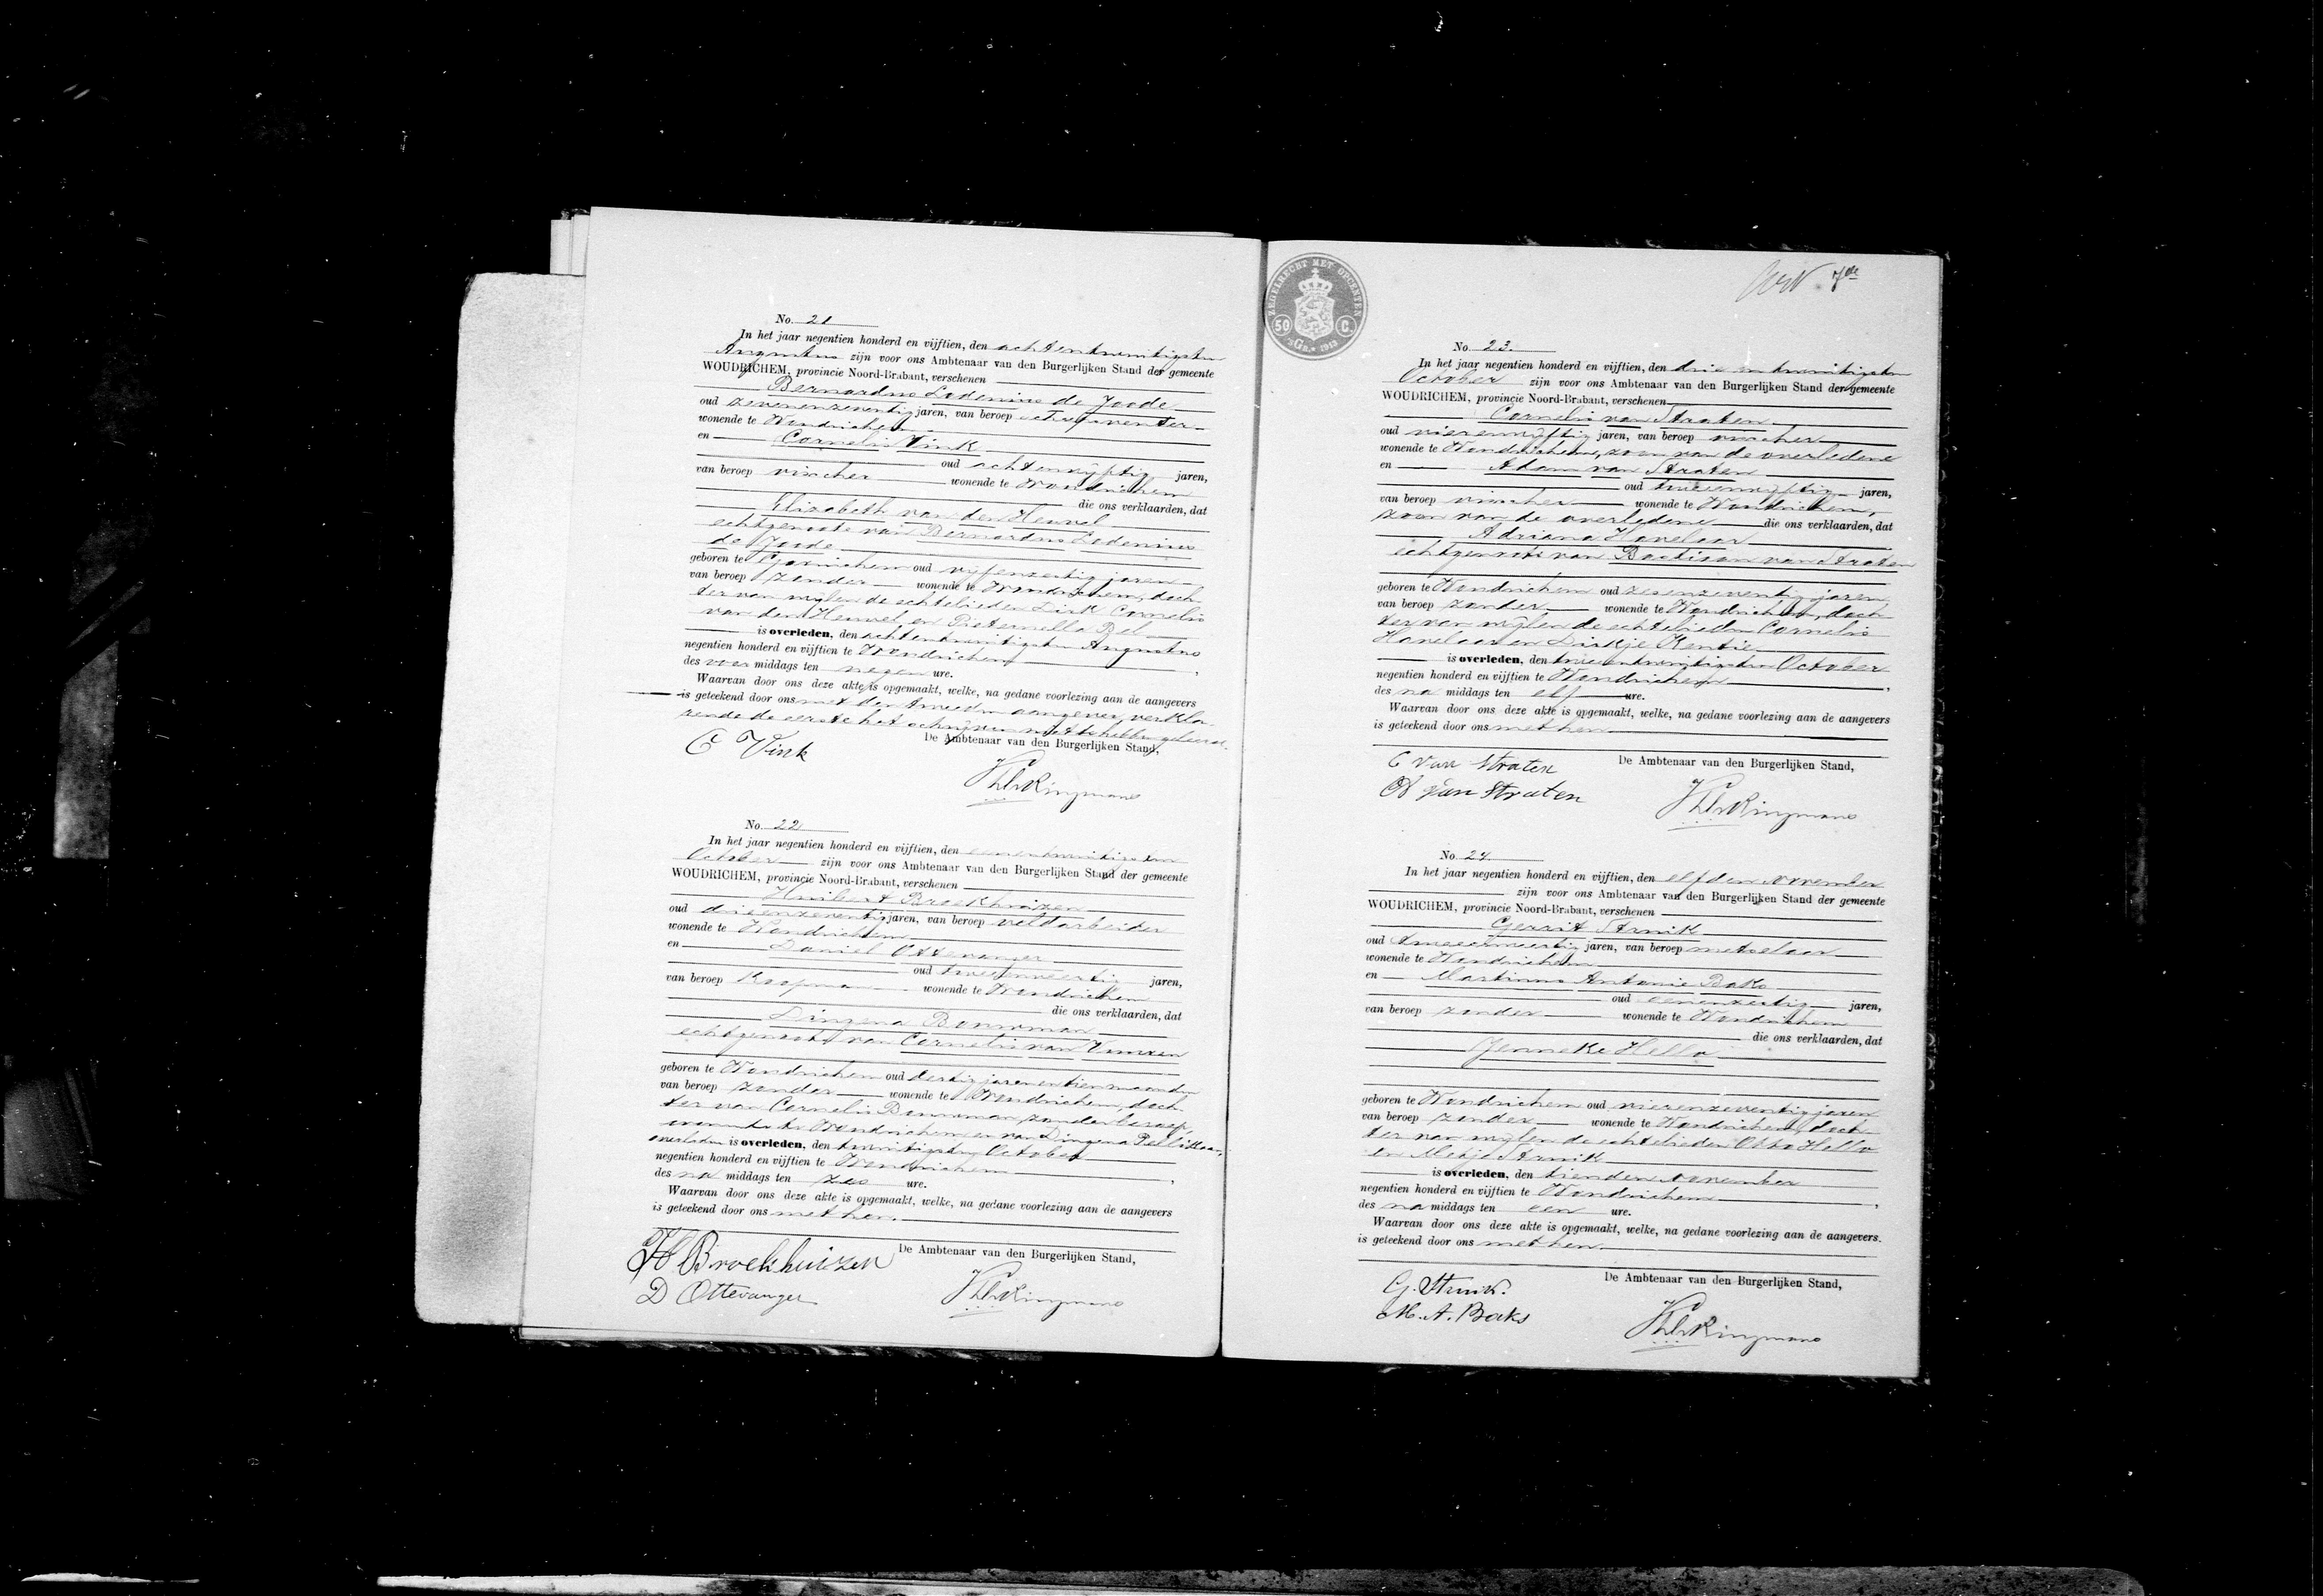 No. 21
In het jaar negentien honderd en vijftien, den achtentwintigsten
Augustus zijn voor ons Ambtenaar van den Burgerlijken Stand der gemeente
WOUDRICHEM, provincie Noord-Brabant, verschenen
Bernardus Lodenius de Joode
oud zevenenzeventig jaren, van beroep
wonende te Woudrichem
en Cornelis Vink
oud achtenvijftig jaren,
van beroep visscher wonende te Woudrichem
die ons verklaarden, dat
Elizabeth van den Heuvel
echtgenoote van Bernardus Lodenius
de Joode
geboren te Gorinchem oud vijfenzestig jaren
van beroep zonder wonende te Woudrichem, doch-
ter van wijlen de echtelieden Dirk Cornelis
van den Heuvel en Pieternella Bel
is overleden, den achtentwintigsten Augustus
negentien honderd en vijftien te Woudrichem
des voor middags ten negen ure.
Waarvan door ons deze akte is opgemaakt, welke, na gedane voorlezing aan de aangevers
is geteekend door ons met den tweeden aangever, verkla-
rende de eerste het schrijven niet te hebben geleerd.
De Ambtenaar van den Burgerlijken Stand,
C Vink
No. 22
In het jaar negentien honderd en vijftien, den eenentwintigsten
October zijn voor ons Ambtenaar van den Burgerlijken Stand der gemeente
WOUDRICHEM, provincie Noord-Brabant, verschenen
Huibert Broekhuizen
oud drieenzeventig jaren, van beroep veldarbeider
wonende te Woudrichem
en Daniel Ottevanger
oud tweeenveertig jaren,
van beroep Koopman wonende te Woudrichem
die ons verklaarden, dat
Dingena Bouwman
echtgenoote van Cornelis van Vuuren
geboren te Woudrichem oud dertig jaren en tien maanden
van beroep zonder wonende te Woudrichem, doch-
ter van Cornelis Bouwman, zonder beroep,
wonende te Woudrichem en van Dingena Pellikaan,
overleden is overleden, den twintigsten October
negentien honderd en vijftien te Woudrichem
des na middags ten zes ure.
Waarvan door ons deze akte is opgemaakt, welke, na gedane voorlezing aan de aangevers
is geteekend door ons met hen.
De Ambtenaar van den Burgerlijken Stand,
H Broekhuizen
D Ottevanger
ZEGELRECHT MET OPCENTEN
50 C.
1913
No. 23.
In het jaar negentien honderd en vijftien, den drie en twintigsten
October zijn voor ons Ambtenaar van den Burgerlijken Stand der gemeente
WOUDRICHEM, provincie Noord-Brabant, verschenen
Cornelis van Straten
oud vierenvijftig jaren, van beroep visscher
wonende te Woudrichem, zoon van de overledene
en Adam van Straten
oud tweeenvijftig jaren,
van beroep visscher wonende te Woudrichem,
zoon van de overledene die ons verklaarden, dat
Adriana Havelaar
echtgenoote van Bastiaan van Straten
geboren te Woudrichem oud zesenzeventig jaren
van beroep zonder wonende te Woudrichem, doch-
ter van wijlen de echtelieden Cornelis
Havelaar en Dirkje Kentie
is overleden, den tweeentwintigsten October
negentien honderd en vijftien te Woudrichem
des na middags ten elf ure.
Waarvan door ons deze akte is opgemaakt, welke, na gedane voorlezing aan de aangevers
is geteekend door ons met hen
De Ambtenaar van den Burgerlijken Stand,
C van Straten
A van Straten
No. 24
In het jaar negentien honderd en vijftien, den elfden November
zijn voor ons Ambtenaar van den Burgerlijken Stand der gemeente
WOUDRICHEM, provincie Noord-Brabant, verschenen
Gerrit Struik
oud tweeenveertig jaren, van beroep metselaar
wonende te Woudrichem
en Martinus Antonie Baks
oud eenenzestig jaren,
van beroep zonder wonende te Woudrichem
die ons verklaarden, dat
Jenneke Hello
geboren te Woudrichem oud vierenzeventig jaren
van beroep zonder wonende te Woudrichem doch-
ter van wijlen de echtelieden Otto Hello
en Metje Struik
is overleden, den tienden November
negentien honderd en vijftien te Woudrichem
des na middags ten een ure.
Waarvan door ons deze akte is opgemaakt, welke, na gedane voorlezing aan de aangevers.
is geteekend door ons met hen.
De Ambtenaar van den Burgerlijken Stand,
G. Struik.
M. A. Baks